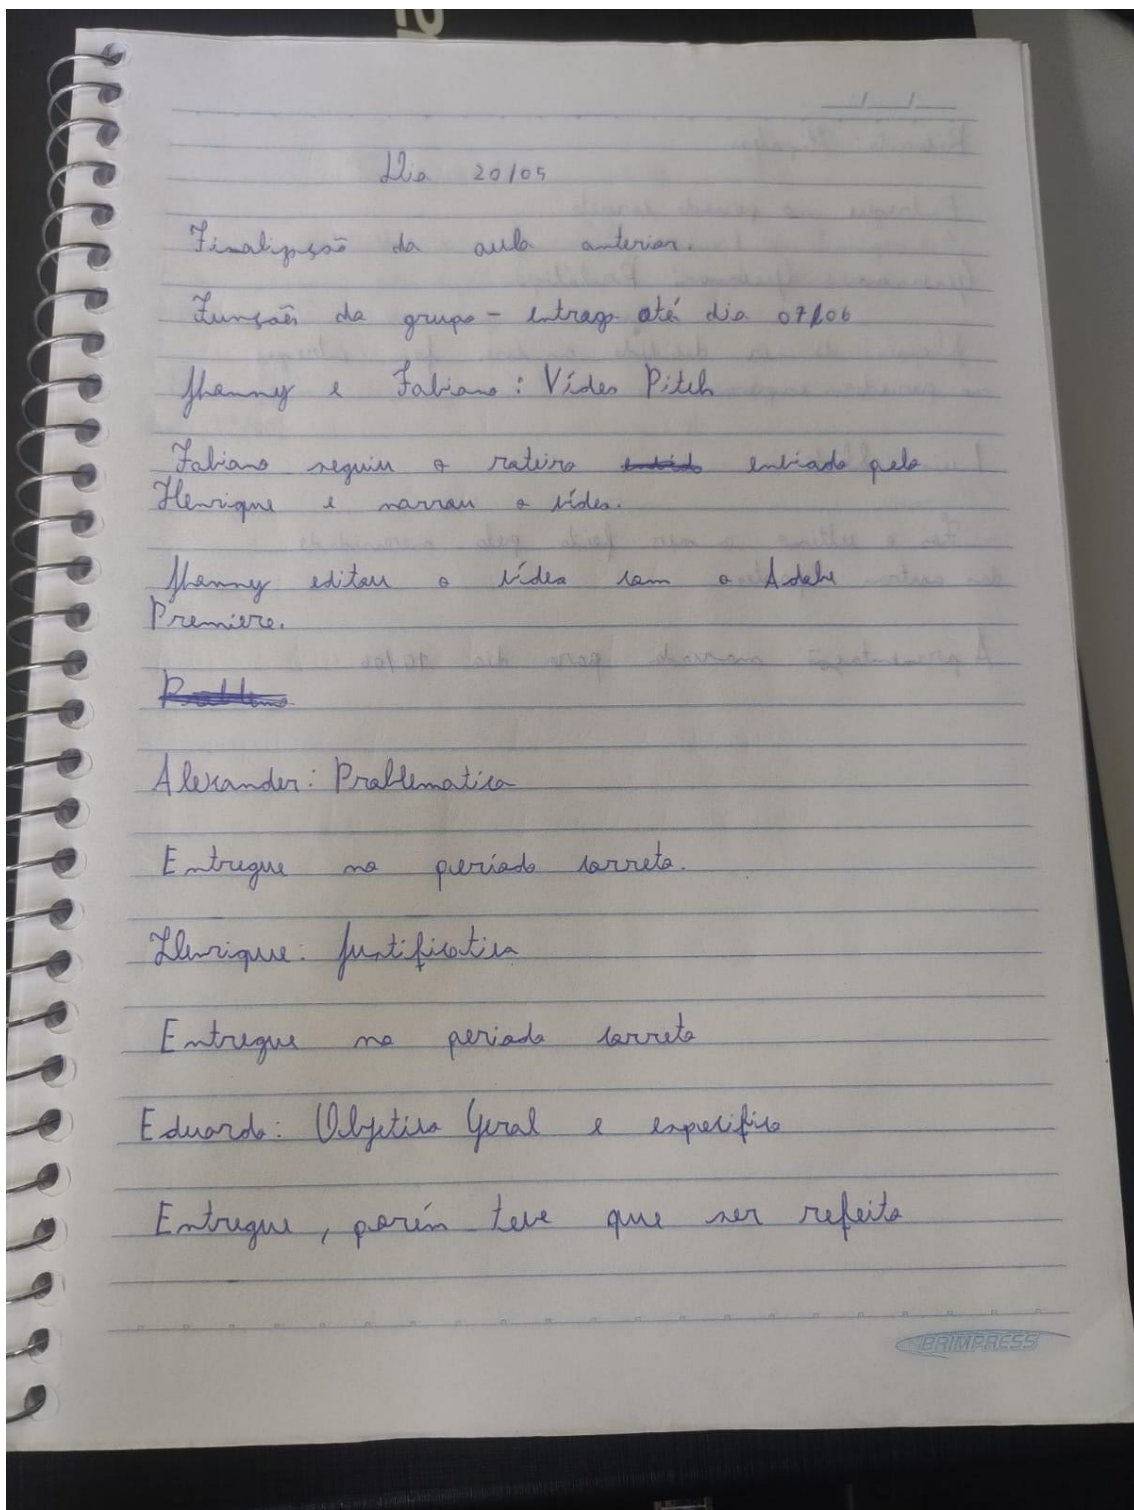 Dia 20/05
Finalização da aula anterior.
Funções do grupo - entrega até dia 07/06
Jhonny e Fabiano: Vídeo Pitch
Fabiano seguiu o roteiro enviado pelo
Henrique e narrou o vídeo.
Jhonny editou o vídeo com o Adobe
Premiere.
Problema
Alexander: Problematica
Entregue no período correto.
Henrique: Justificativa
Entregue no periodo correto
Eduardo: Objetivo Geral e especifico
Entregue, porém teve que ser refeito
BRIMPRESS